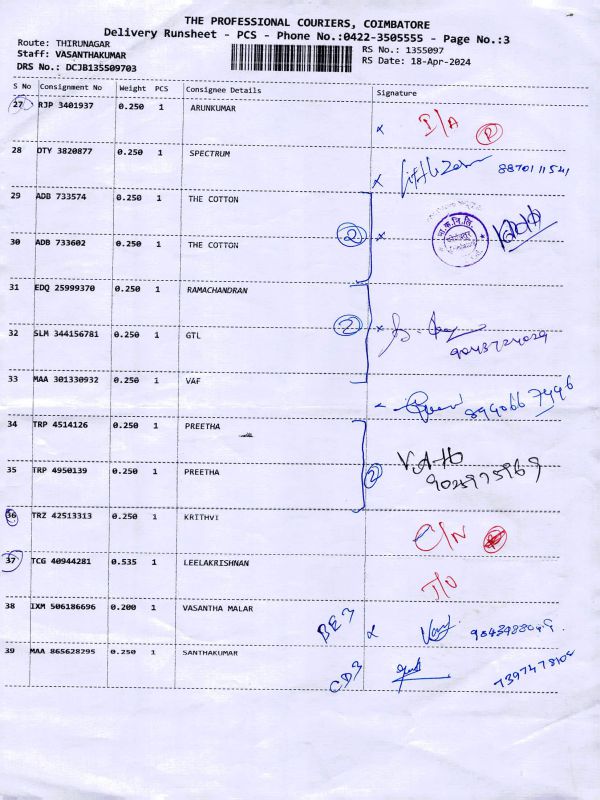 THE PROFESSIONAL COURIERS, COIMBATORE
Delivery Runsheet - PCS - Phone No.:0422-3505555 - Page No.:3
Route: THIRUNAGAR
RS No.: 1355097
Staff: VASANTHAKUMAR
RS Date: 18-Apr-2024
DRS No.: DCJB135509703
S No Consignment No Weight PCS Consignee Details Signature
27 RJP 3401937 0.250 1 ARUNKUMAR
28 DTY 3820877 0.250 1 SPECTRUM 8870111541
29 ADB 733574 0.250 1 THE COTTON
2
30 ADB 733602 0.250 1 THE COTTON
31 EDQ 25999370 0.250 1 RAMACHANDRAN
2
32 SLM 344156781 0.250 1 GTL
33 MAA 301330932 0.250 1 VAF
34 TRP 4514126 0.250 1 PREETHA
2
35 TRP 4950139 0.250 1 PREETHA
9025975969
36 TRZ 42513313 0.250 1 KRITHVI
C/N
37 TCG 40944281 0.535 1 LEELAKRISHNAN
38 IXM 506186696 0.200 1 VASANTHA MALAR
39 MAA 865628295 0.250 1 SANTHAKUMAR